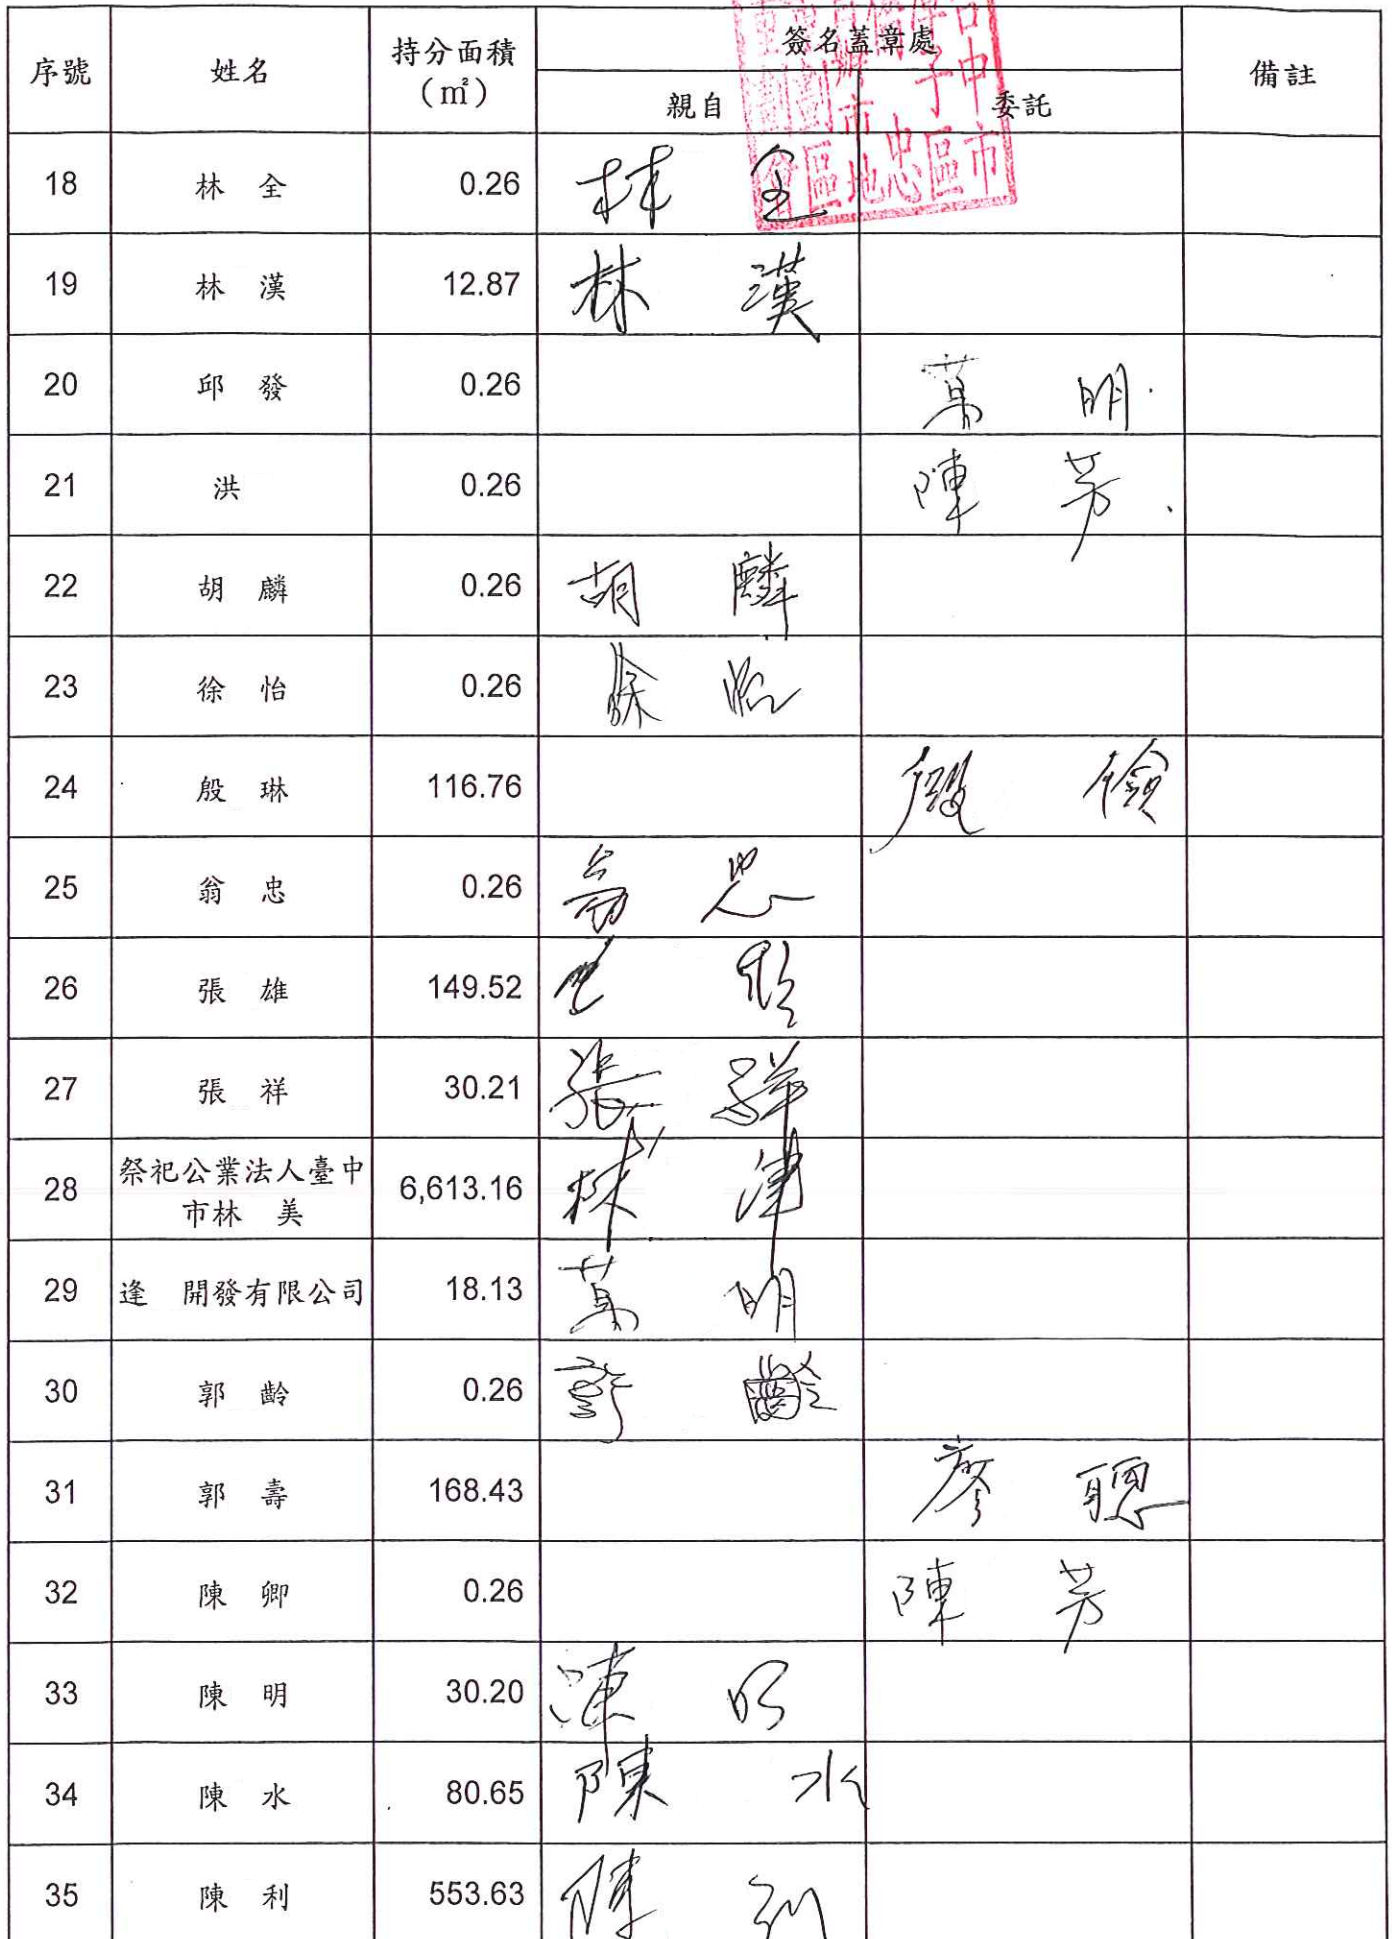 序號 姓名 持分面積(㎡) 簽名蓋章處 備註
親自 委託
18 林 全 0.26 林 全
19 林 漢 12.87 林 漢
20 邱 發 0.26 葛 明
21 洪 0.26 陳 芳
22 胡 麟 0.26 胡 麟
23 徐 怡 0.26 徐 怡
24 殷 琳 116.76 殷 儉
25 翁 忠 0.26 翁 忠
26 張 雄 149.52
27 張 祥 30.21 張 祥
28 祭祀公業法人臺中市林 美 6,613.16 林 津
29 逢 開發有限公司 18.13 葛 明
30 郭 齡 0.26 郭 齡
31 郭 壽 168.43 廖 聰
32 陳 卿 0.26 陳 芳
33 陳 明 30.20 陳 明
34 陳 水 80.65 陳 水
35 陳 利 553.63 陳 利